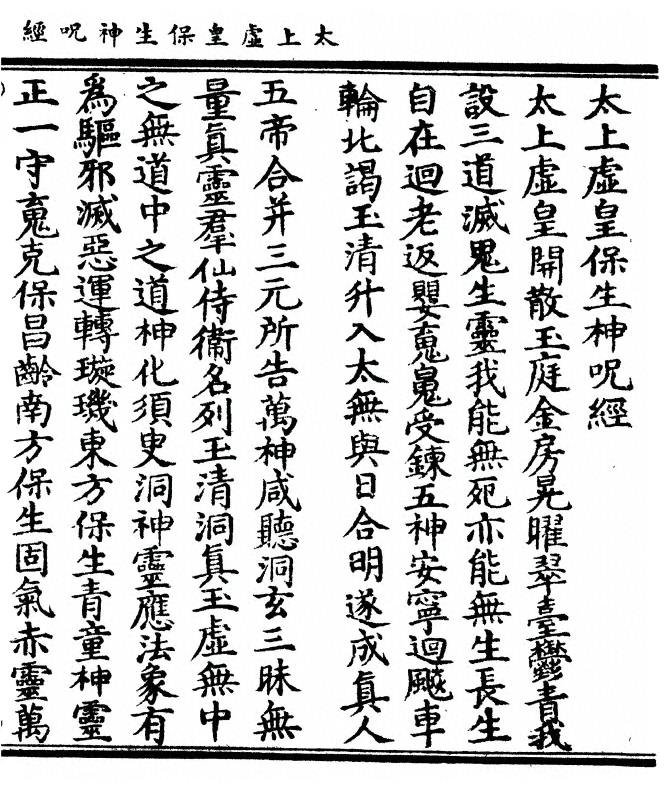 太上虛皇保生神呪經
太上虛皇保生神呪經
太上虛皇開散玉庭金房晃曜翠臺鬱青我
設三道滅鬼生靈我能無死亦能無生長生
自在迴老返嬰䰟魄受鍊五神安寧迴飈車
輪北謁玉清升入太無與日合明遂成眞人
五帝合并三元所告萬神咸聽洞玄三昧無
量眞靈羣仙侍衛名列玉清洞眞玉虛無中
之無道中之道神化須臾洞神靈應法象有
爲驅邪滅惡運轉璇璣東方保生青童神靈
正一守䰟克保昌齡南方保生固氣赤靈萬